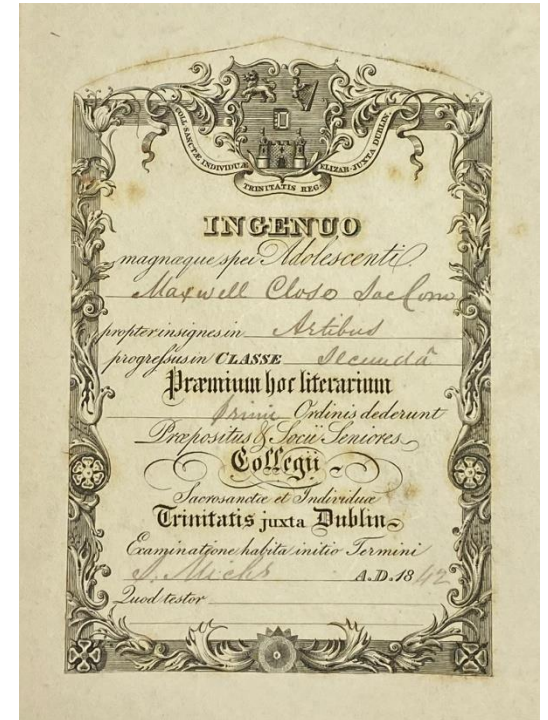 COLL. SANCTÆ INDIVIDUÆ
TRINITATIS REG.
ELIZAB. JUXTA DUBLIN
INGENUO
magnæque spei Adolescenti
Maxwell Close Soc Com
propter insignes in Artibus
progressus in CLASSE Secundâ
Præmium hoc literarium
primi Ordinis dederunt
Præpositus & Socii Seniores
Collegii
Sacrosanctæ et Individuæ
Trinitatis juxta Dublin
Examinatione habita initio Termini
S. Michs A.D. 1842
Quod testor